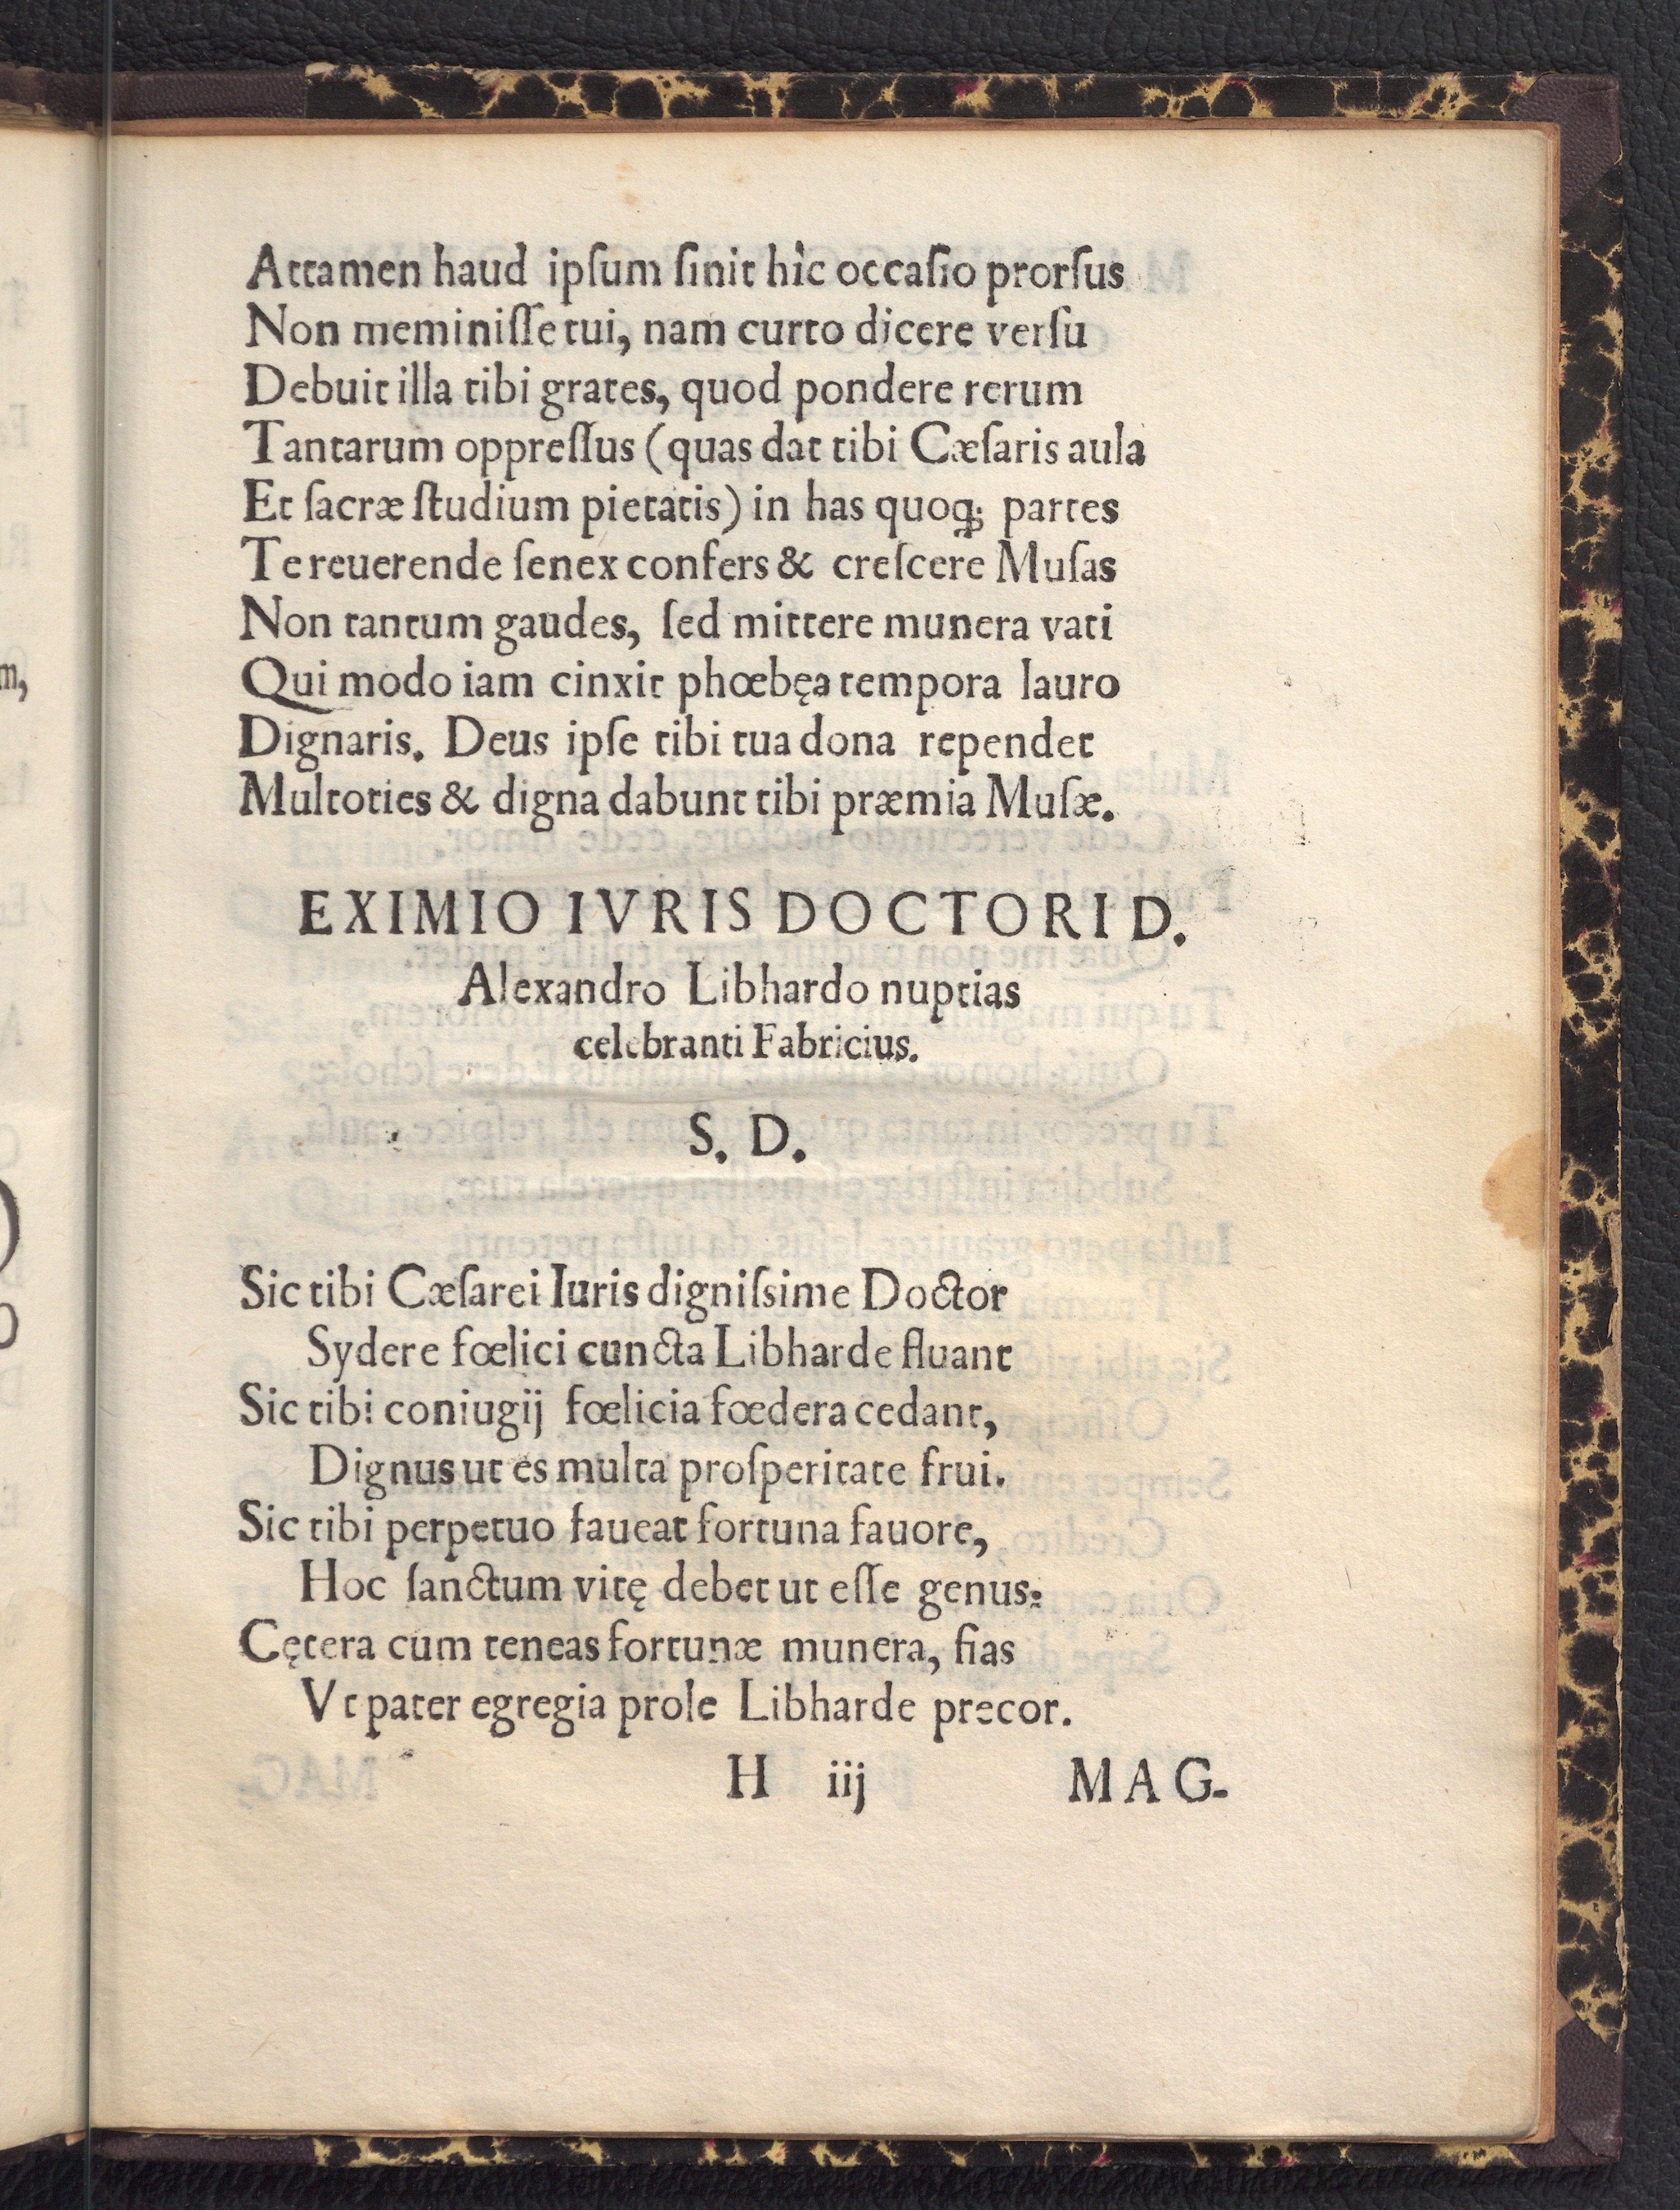 Attamen haud ipſum ſinit hîc occaſio prorſus
Non meminiſſe tui, nam curto dicere verſu
Debuit illa tibi grates, quod pondere rerum
Tantarum oppreſſus (quas dat tibi Cæſaris aula
Et ſacræ ſtudium pietatis) in has quoq; partes
Te reuerende ſenex confers & creſcere Muſas
Non tantum gaudes, ſed mittere munera vati
Qui modo iam cinxit phœbęa tempora lauro
Dignaris. Deus ipſe tibi tua dona rependet
Multoties & digna dabunt tibi præmia Muſæ.
EXIMIO IVRIS DOCTORI D.
Alexandro Libhardo nuptias
celebranti Fabricius.
S. D.
Sic tibi Cæſarei Iuris digniſsime Doctor
Sydere fœlici cuncta Libharde fluant
Sic tibi coniugij fœlicia fœdera cedant,
Dignus ut es multa proſperitate frui.
Sic tibi perpetuo faueat fortuna fauore,
Hoc ſanctum vitę debet ut eſſe genus:
Cętera cum teneas fortunæ munera, fias
Vt pater egregia prole Libharde precor.
H iij MAG-